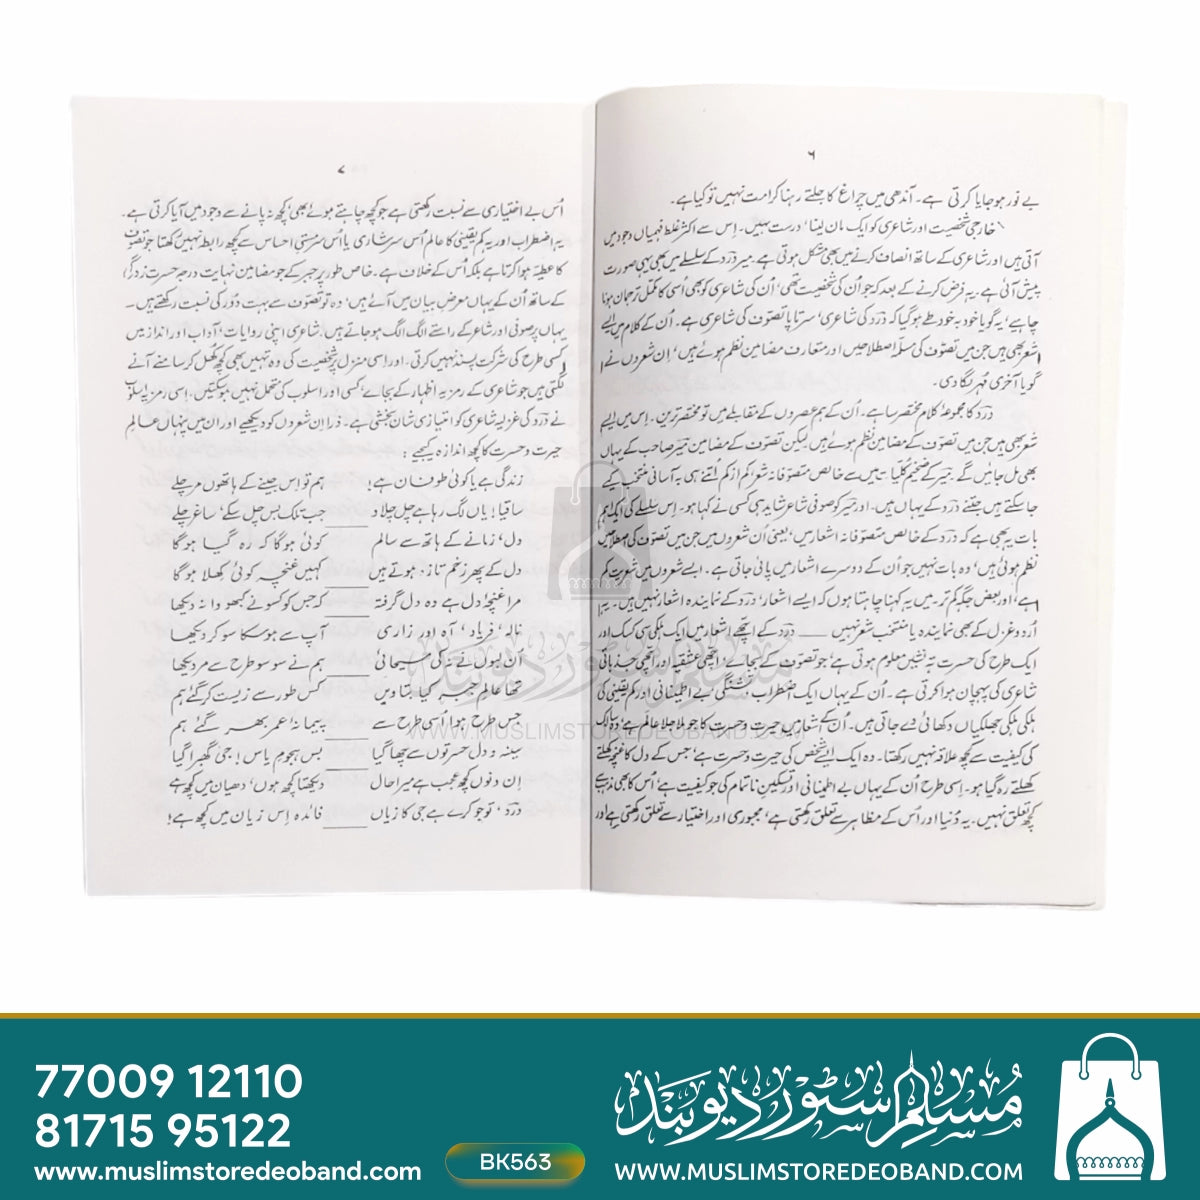 ۶
بے نور ہو جایا کرتی ہے۔ آندھی میں چراغ کا جلتے رہنا کرامت نہیں تو کیا ہے۔
خارجی شخصیت اور شاعری کو ایک مان لینا، درست نہیں۔ اِس سے اکثر غلط فہمیاں وجود میں
آتی ہیں اور شاعری کے ساتھ انصاف کرنے میں بھی مشکل ہوتی ہے۔ میر درد کے سلسلے میں بھی یہی صورت
پیش آئی ہے۔ یہ فرض کرنے کے بعد کہ جو اُن کی شخصیت تھی، اُن کی شاعری کو بھی اُسی کا مکمل ترجمان ہونا
چاہیے، یہ گویا خود بہ خود طے ہو گیا کہ درد کی شاعری، سرتاپا تصوّف کی شاعری ہے۔ اُن کے کلام میں ایسے
شعر بھی ہیں جن میں تصوّف کی مسلّمہ اصطلاحیں اور متعارف مضامین نظم ہوئے ہیں، اِن شعروں نے
گویا آخری مُہر لگا دی۔
درد کا مجموعۂ کلام مختصر سا ہے۔ اُن کے ہم عصروں کے مقابلے میں تو مختصر ترین۔ اِس میں ایسے
شعر بھی ہیں جن میں تصوّف کے مضامین نظم ہوئے ہیں لیکن تصوّف کے مضامین میر صاحب کے یہاں
بھی مل جائیں گے۔ میر کے ضخیم کُلیات میں سے خالص متصوّفانہ شعر اکم از کم اُتنے ہی بہ آسانی منتخب کیے
جا سکتے ہیں جتنے درد کے یہاں ہیں۔ اور میر کو صوفی شاعر شاید ہی کسی نے کہا ہو۔ اِس سلسلے کی ایک اہم
بات یہ بھی ہے کہ درد کے خالص متصوّفانہ اشعار میں، یعنی اُن شعروں میں جن میں تصوّف کی
نظم ہوئی ہیں، وہ بات نہیں جو اُن کے دوسرے اشعار میں پائی جاتی ہے۔ ایسے شعروں میں شعریت کم
ہے، اور بعض جگہ کم تر۔ میں یہ کہنا چاہتا ہوں کہ ایسے اشعار، درد کے نمایندہ اشعار نہیں ہیں۔ یہ
اردو غزل کے بھی نمایندہ یا منتخب شعر نہیں ــــــ درد کے اچھے اشعار میں ایک ہلکی سی کسک اور
ایک طرح کی حسرت تہ نشین معلوم ہوتی ہے، جو تصوّف کے بجائے، اچھی عشقیہ اور اچھی جذباتی
شاعری کی پہچان ہوا کرتی ہے۔ اُن کے یہاں ایک اضطراب، تشنگی، بے اطمینانی اور کم یقینی کی
ہلکی ہلکی جھلکیاں دکھائی دے جاتی ہیں۔ اُن کے اشعار میں حیرت و حسرت کا جو ملا جلا عالم ہے، وہ سالک
کی کیفیت سے کچھ علاقہ نہیں رکھتا۔ وہ ایک ایسے شخص کی حیرت و حسرت ہے، جس کے دل کا غنچہ کھلتے
کھلتے رہ گیا ہو۔ اِسی طرح اُن کے یہاں بے اطمینانی اور تسکینِ ناتمام کی جو کیفیت ہے، اُس کا بھی مذہب سے
کچھ تعلق نہیں۔ یہ دُنیا اور اُس کے مظاہر سے تعلق رکھتی ہے، مجبوری اور اختیار سے تعلق رکھتی ہے اور
۷
اُس بے اختیاری سے نسبت رکھتی ہے جو کچھ چاہتے ہوئے بھی، کچھ نہ پانے سے وجود میں آیا کرتی ہے۔
یہ اضطراب اور یہ کم یقینی کا عالم اُس سرشاری یا اُس سرمستیِ احساس سے کچھ رابطہ نہیں رکھتا جو تصوّف
کا عطیّہ ہوا کرتا ہے بلکہ اُس کے خلاف ہے۔ خاص طور پر جبر کے جو مضامین نہایت درجہ حسرت زدگی
کے ساتھ اُن کے یہاں معرضِ بیان میں آئے ہیں، وہ تو تصوّف سے بہت دُور کی نسبت رکھتے ہیں۔
یہاں پر صوفی اور شاعر کے راستے الگ الگ ہو جاتے ہیں۔ شاعری اپنی روایات، آداب اور انداز میں
کسی طرح کی شرکت پسند نہیں کرتی۔ اور اِسی منزل پر شخصیت کی وہ تہیں بھی کچھ کُھل کر سامنے آنے
لگتی ہیں جو شاعری کے رمزیہ اظہار کے بجائے، کسی اور اسلوب کی متحمّل نہیں ہو سکتیں۔ اِسی رمزیہ اسلوب
نے درد کی غزلیہ شاعری کو امتیازی شان بخشی ہے۔ ذرا اِن شعروں کو دیکھیے اور ان میں پنہاں عالمِ
حیرت و حسرت کا کچھ اندازہ کیجیے :
زندگی ہے یا کوئی طوفان ہے! ہم تو اِس جینے کے ہاتھوں مر چلے
ساقیا! یاں لگ رہا ہے چل چلاو ــــــ جب تلک بس چل سکے، ساغر چلے
دل، زمانے کے ہاتھ سے سالم کوئی ہوگا کہ رہ گیا ہوگا
دل کے پھر زخم تازہ ہوتے ہیں کہیں غنچہ کوئی کھلا ہوگا
مرا غنچۂ دل ہے وہ دل گرفتہ کہ جس کو کسو نے کبھو وا نہ دیکھا
نالہ، فریاد، آہ اور زاری آپ سے ہو سکا سو کر دیکھا
اُن لبوں نے نہ کی مسیحائی ــــــ ہم نے سو سو طرح سے مر دیکھا
تھا عالمِ جبر کیا بتاویں کس طور سے زیست کر گئے ہم
جس طرح ہوا اُسی طرح سے ــــــ پیمانۂ عمر بھر گئے ہم
سینہ و دل حسرتوں سے چھا گیا ــــــ بس ہجومِ یاس! جی گھبرا گیا
اِن دنوں کچھ عجب ہے میرا حال دیکھتا کچھ ہوں، دھیان میں کچھ ہے
درد، تو جو کرے ہے جی کا زیاں ــــــ فائدہ اِس زیان میں کچھ ہے!
مسلم سٹور دیوبند
WWW.MUSLIMSTOREDEOBAND.COM
77009 12110
81715 95122
www.muslimstoredeoband.com
BK563
مسلم سٹور دیوبند
WWW.MUSLIMSTOREDEOBAND.COM